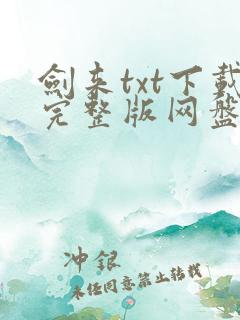 劍来txt下載
完整版网盤
冲銀
未经同意禁止转载